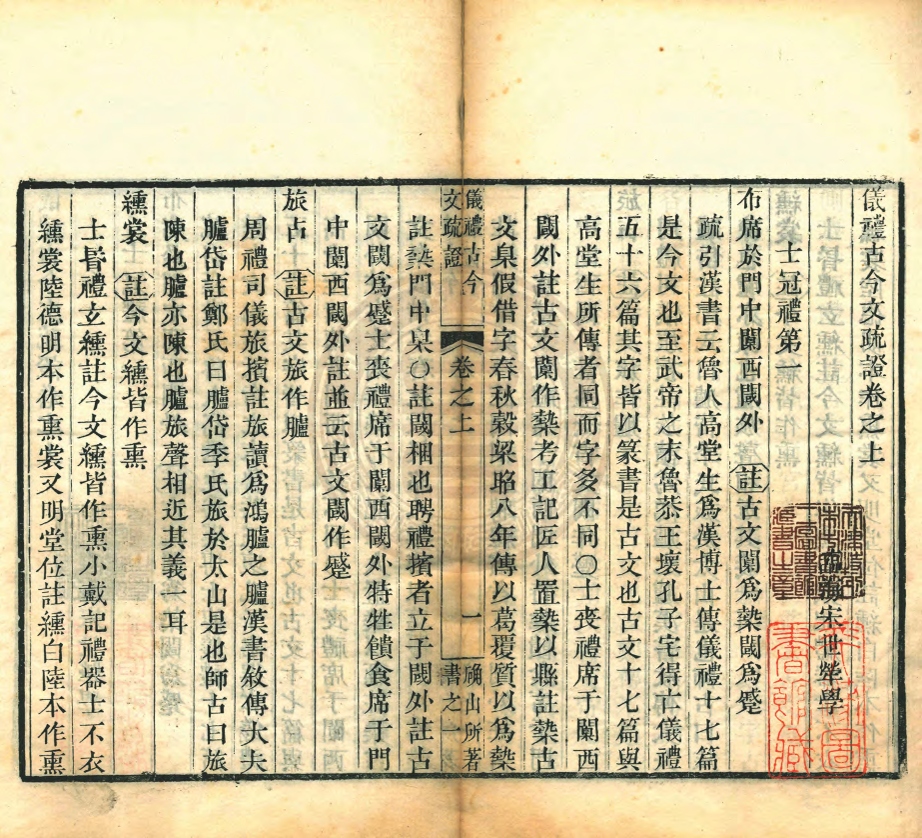 儀禮古今文疏證卷之上
宋世犖學
士冠禮第一
布席於門中闑西閾外註古文闑爲槷閾爲蹙
疏引漢書云魯人高堂生爲漢博士傳儀禮十七篇
是今文也至武帝之末魯恭王壞孔子宅得亡儀禮
五十六篇其字皆以篆書是古文也古文十七篇與
高堂生所傳者同而字多不同○士喪禮席于闑西
閾外註古文闑作槷考工記匠人置槷以縣註槷古
文臬假借字春秋穀梁昭八年傳以葛覆質以爲槷
儀禮古今文疏證
卷之上
一
确山所著書之一
註槷門中臬○註閾梱也聘禮擯者立于閾外註古
文閾爲蹙士喪禮席于闑西閾外特牲饋食席于門
中闑西閾外註並云古文閾作蹙
旅占註古文旅作臚
周禮司儀旅擯註旅讀爲鴻臚之臚漢書敘傳大夫
臚岱註鄭氏曰臚岱季氏旅於太山是也師古曰旅
陳也臚亦陳也臚旅聲相近其義一耳
纁裳註今文纁皆作熏
士昏禮玄纁註今文纁皆作熏小戴記禮器士不衣
纁裳陸德明本作熏裳又明堂位註纁白陸本作熏